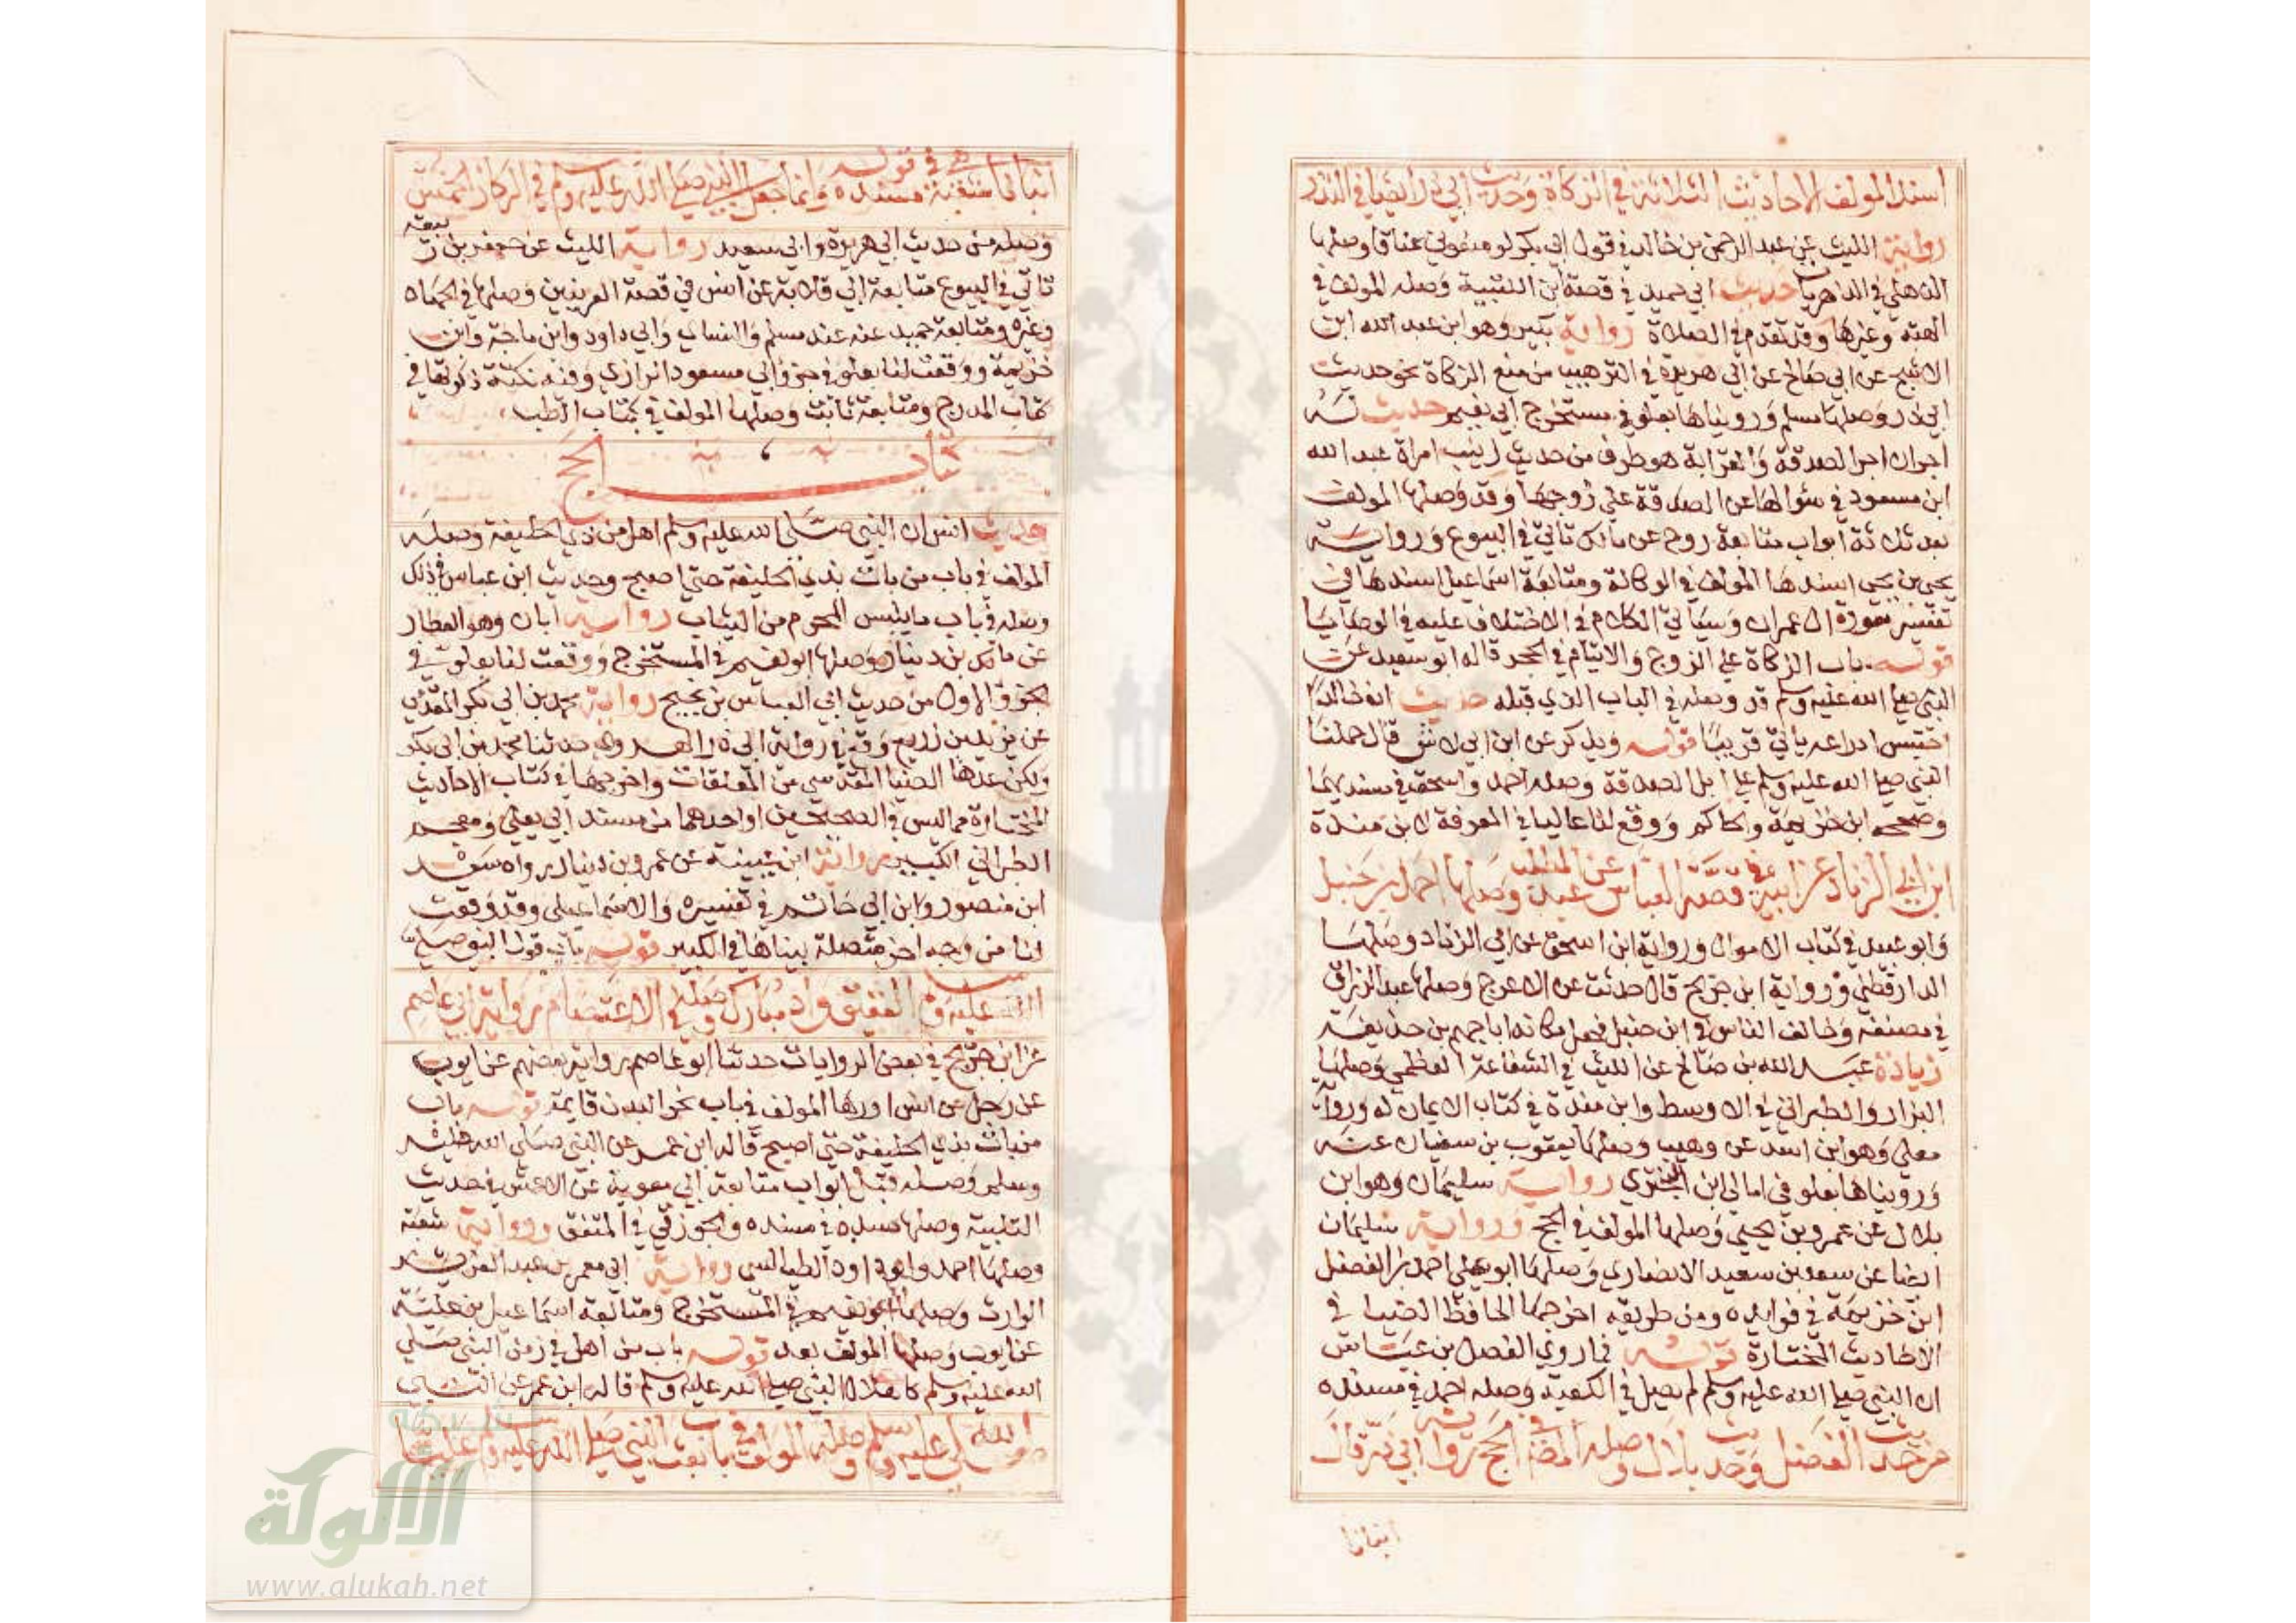 اسند المولف الاحاديث الثلاثة في الزكاة وحديث ابي ذر ايضا في النذر
رواية الليث عن عبد الرحمن بن خالد في قول ابي بكر لو منعوني عناقا وصلها
الذهلي في الذهريات حديث ابي حميد في قصة ابن اللتبية وصله المولف في
الهبة وغيرها وقد تقدم في الصلاة رواية بكير وهو ابن عبد الله ابن
الاشج عن ابي صالح عن ابي هريرة في الترهيب من منع الزكاة نحو حديث
ابي ذر وصلها مسلم ورويناها بعلو في مستخرج ابي نعيم حديث له
اجران اجر الصدقة والقرابة هو طرف من حديث زينب امراة عبد الله
ابن مسعود في سؤالها عن الصدقة على زوجها وقد وصلها المولف
بعد ثلاثة ابواب متابعة روح عن مالك تاتي في البيوع ورواية
يحيى بن يحيى اسندها المولف في الوكالة ومتابعة اسماعيل اسندها في
تفسير سورة ال عمران وسياتي الكلام في الاختلاف عليه في الوصايا
قوله باب الزكاة على الزوج والايتام في الحجر قاله ابو سعيد عن
النبي صلى الله عليه وسلم قد وصله في الباب الذي قبله حديث ان خالدا
احتبس ادراعه ياتي قريبا قوله ويذكر عن ابن ابي لاس قال حملنا
النبي صلى الله عليه وسلم على ابل الصدقة وصله احمد واسحق في مسنديهما
وصححه ابن خزيمة والحاكم ووقع لنا عاليا في المعرفة لابن مندة
ابن ابي الزناد عن ابيه في قصة العباس عن عبد المطلب وصلها احمد بن حنبل
وابو عبيد في كتاب الاموال ورواية ابن اسحق عن ابي الزناد وصلها
الدارقطني ورواية ابن جريج قال حدثت عن الاعرج وصلها عبد الرزاق
في مصنفه وخالف الناس في ابن جميل فجعل مكانه ابا جهم بن حذيفة
زيادة عبد الله بن صالح عن الليث في الشفاعة العظمى وصلها
البزار والطبراني في الاوسط وابن مندة في كتاب الايمان له ورواية
معلى وهو ابن اسد عن وهيب وصلها يعقوب بن سفيان عنه
ورويناها بعلو في امالي ابن البختري رواية سليمان وهو ابن
بلال عن عمرو بن يحيى وصلها المولف في الحج ورواية سليمان
ايضا عن سعد بن سعيد الانصاري وصلها ابو علي احمد بن الفضل
ابن خزيمة في فوايده ومن طريقه اخرجها الحافظ الضيا في
الاحاديث المختارة قوله فيما روى الفضل بن عباس
ان النبي صلى الله عليه وسلم لم يصل في الكعبة وصله احمد في مسنده
من حديث الفضل وحديث بلال وصله المص في الحج رواية ابي ذر قال
انبانا
انبانا شعبة هي في مسنده قوله وانما جعل النبي صلى الله عليه وسلم في الركاز الخمس
وصله من حديث ابي هريرة وابي سعيد رواية الليث عن جعفر بن ربيعة
تاتي في البيوع متابعة ابي قلابة عن انس في قصة العرنيين وصلها في الجهاد
وغيره ومتابعة حميد عنه عند مسلم والنساي وابي داود وابن ماجة وابن
خزيمة ووقعت لنا بعلو في جزؤ ابي مسعود الرازي وفيه نكتة ذكرتها في
كتاب المدرج ومتابعة ثابت وصلها المولف في كتاب الطب
كتاب الحج
حديث انس ان النبي صلى الله عليه وسلم اهل من ذي الحليفة وصله
المولف في باب من بات بذي الحليفة حتى اصبح وحديث ابن عباس في ذلك
وصله في باب ما يلبس المحرم من الثياب رواية ابان وهو العطار
عن مالك بن دينار وصلها ابو نعيم في المستخرج ووقعت لنا بعلو في
الجزؤ الاول من حديث ابي العباس بن نجيح رواية محمد بن ابي بكر المقدمي
عن يزيد بن زريع وقع في رواية ابي ذر الهروي حدثنا محمد بن ابي بكر
ولكن عدها الضيا المقدسي من المعلقات واخرجها في كتاب الاحاديث
المختارة مما ليس في الصحيحين او احدهما من مسند ابي يعلى ومعجم
الطبراني الكبير رواية ابن عيينة عن عمرو بن دينار رواه سعيد
ابن منصور وابن ابي حاتم في تفسيره والاسماعيلي وقد وقعت
لنا من وجه اخر متصلة بيناها في الكبير قوله باب قول النبي صلى
الله عليه وسلم العقيق واد مبارك وصله في الاعتصام رواية ابي عاصم
عن ابن جريج في بعض الروايات حدثنا ابو عاصم رواية بعضهم عن ايوب
عن رجل عن انس اوردها المولف في باب نحر البدن قايمة قوله باب
من بات بذي الحليفة حتى اصبح قاله ابن عمر عن النبي صلى الله عليه
وسلم وصله قبل ابواب متابعة ابي معوية عن الاعمش في حديث
التلبية وصلها مسدد في مسنده والجوزقي في المتفق ورواية شعبة
وصلها احمد وابو داود الطيالسي رواية ابي معمر بن عبد
الوارث وصلها ابو نعيم في المستخرج ومتابعة اسماعيل بن علية
عن ايوب وصلها المولف بعد قوله باب من اهل في زمن النبي صلى
الله عليه وسلم كاهلال النبي صلى الله عليه وسلم قاله ابن عمر عن النبي
صلى الله عليه وسلم وصله المولف في باب بعث النبي صلى الله عليه وسلم عليا
شبكة
الألوكة
www.alukah.net